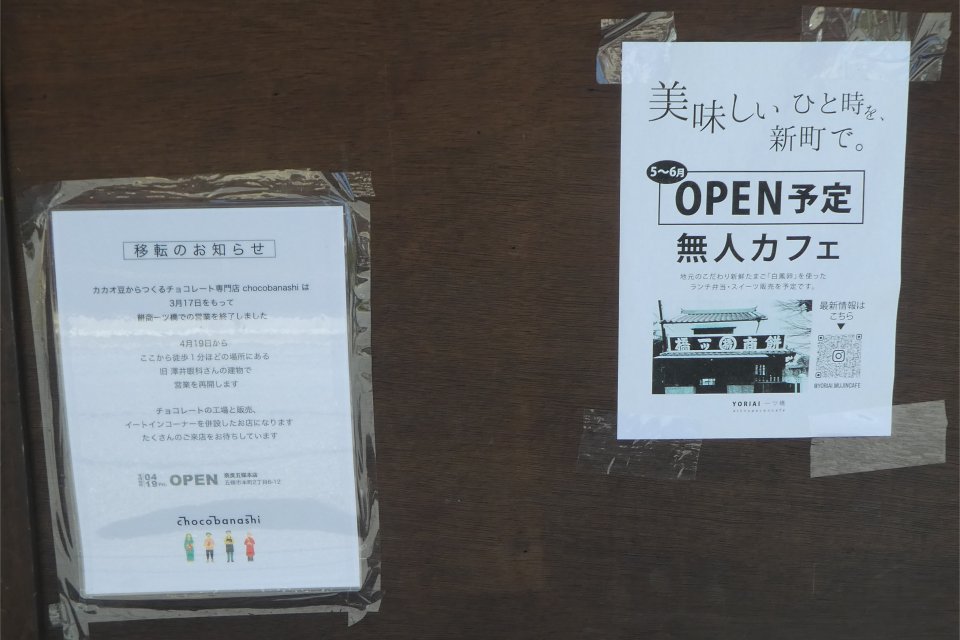 移転のお知らせ
カカオ豆からつくるチョコレート専門店 chocobanashi は
3月17日をもって
餅商一ツ橋での営業を終了しました
4月19日から
ここから徒歩1分ほどの場所にある
旧 澤井眼科さんの建物で
営業を再開します
チョコレートの工場と販売、
イートインコーナーを併設したお店になります
たくさんのご来店をお待ちしています
04
19 Fri. OPEN
奈良五條本店
五條市本町2丁目6-12
chocobanashi
美味しい ひと時を、
新町で。
5〜6月
OPEN予定
無人カフェ
地元のこだわり新鮮たまご「白鳳卵」を使った
ランチ弁当・スイーツ販売を予定です。
最新情報は
こちら
▼
橋ツ一商餅
@YORIAI.MUJINCAFE
YORIAI 一ツ橋